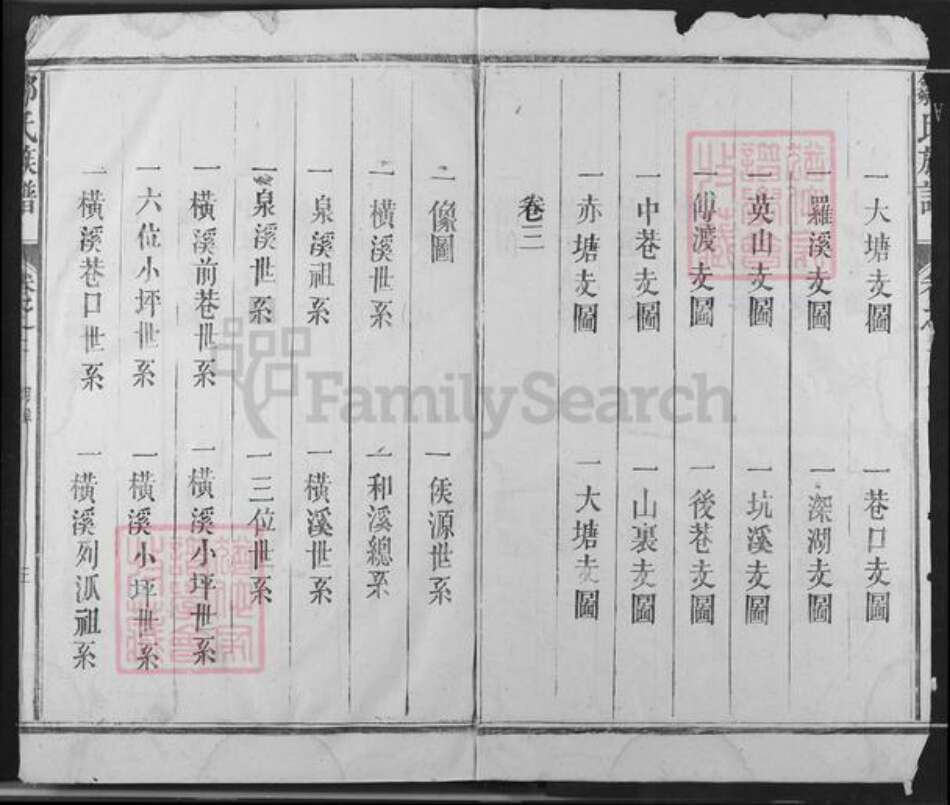 一大塘支圖 一巷口支圖
一羅溪支圖 一深湖支圖
一英山支圖 一坑溪支圖
一傅渡支圖 一後巷支圖
一中巷支圖 一山裏支圖
一赤塘支圖 一大塘支圖
卷三
一像圖 一侯源世系
一橫溪世系 一和溪總系
一泉溪祖系 一橫溪世系
一泉溪世系 一三位世系
一橫溪前巷世系 一橫溪小坪世系
一六位小坪世系 一橫溪小坪世系
一橫溪巷口世系 一橫溪列派祖系
氏族譜
FamilySearch